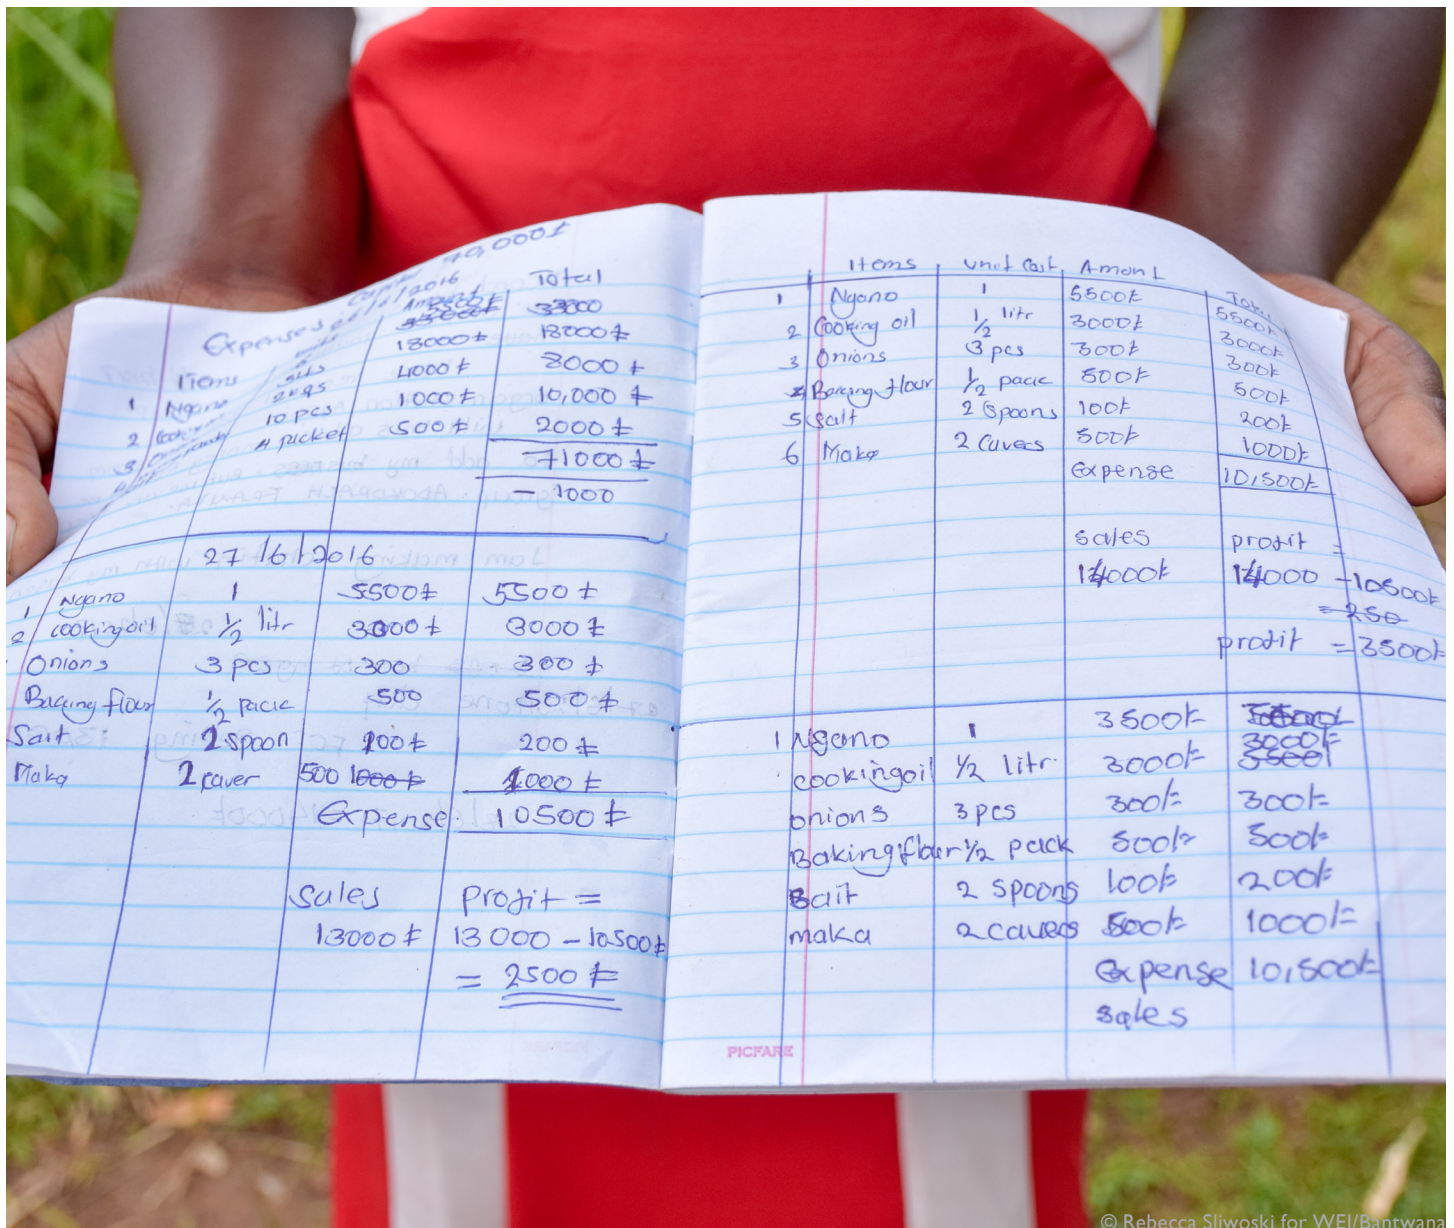 Capital 70,000/=
Expenses 26/6/2016
Items Amount Total
1 Ngano 33000
2 Cooking oil 18000/= 18000/=
3 2kgs 4000/= 8000/=
10 pcs 1000/= 10,000/=
4 packet 500/= 2000/=
71000/=
- 1000
27/6/2016
1 Ngano 1 5500/= 5500/=
2 cooking oil 1/2 litr 3000/= 3000/=
Onions 3 pcs 300 300/=
Backing flour 1/2 pack 500 500/=
Salt 2 spoon 100/= 200/=
Maka 2 caver 500 1000/= 1000/=
Expense 10500/=
Sales Profit =
13000/= 13000 - 10500/=
= 2500/=
Items Unit Cost Amont Total
1 Ngano 1 5500/= 5500/=
2 Cooking oil 1/2 litr 3000/= 3000/=
3 Onions 3 pcs 300/= 300/=
4 Backing flour 1/2 pack 500/= 500/=
5 Salt 2 Spoons 100/= 200/=
6 Maka 2 Cavers 500/= 1000/=
Expense 10,500/=
sales profit =
14000/= 14000 - 10500/=
= 250
profit = 3500/=
1 Ngano 1 3500/=
cooking oil 1/2 litr. 3000/= 3000/=
onions 3 pcs 300/= 300/=
Baking flour 1/2 pack 500/= 500/=
Salt 2 spoons 100/= 200/=
maka 2 cavers 500/= 1000/=
Expense 10,500/=
sales
PICFARE
© Rebecca Sliwoski for WEI/Bantwana